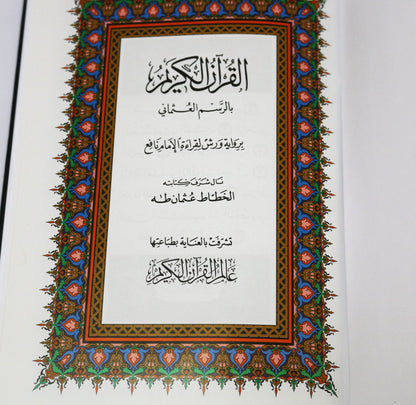 القرآن الكريم
بالرسم العثماني
برواية ورش لقراءة الإمام نافع
نال شرف كتابته
الخطاط عثمان طه
تشرفت بالعناية بطباعتها
عالم القرآن الكريم